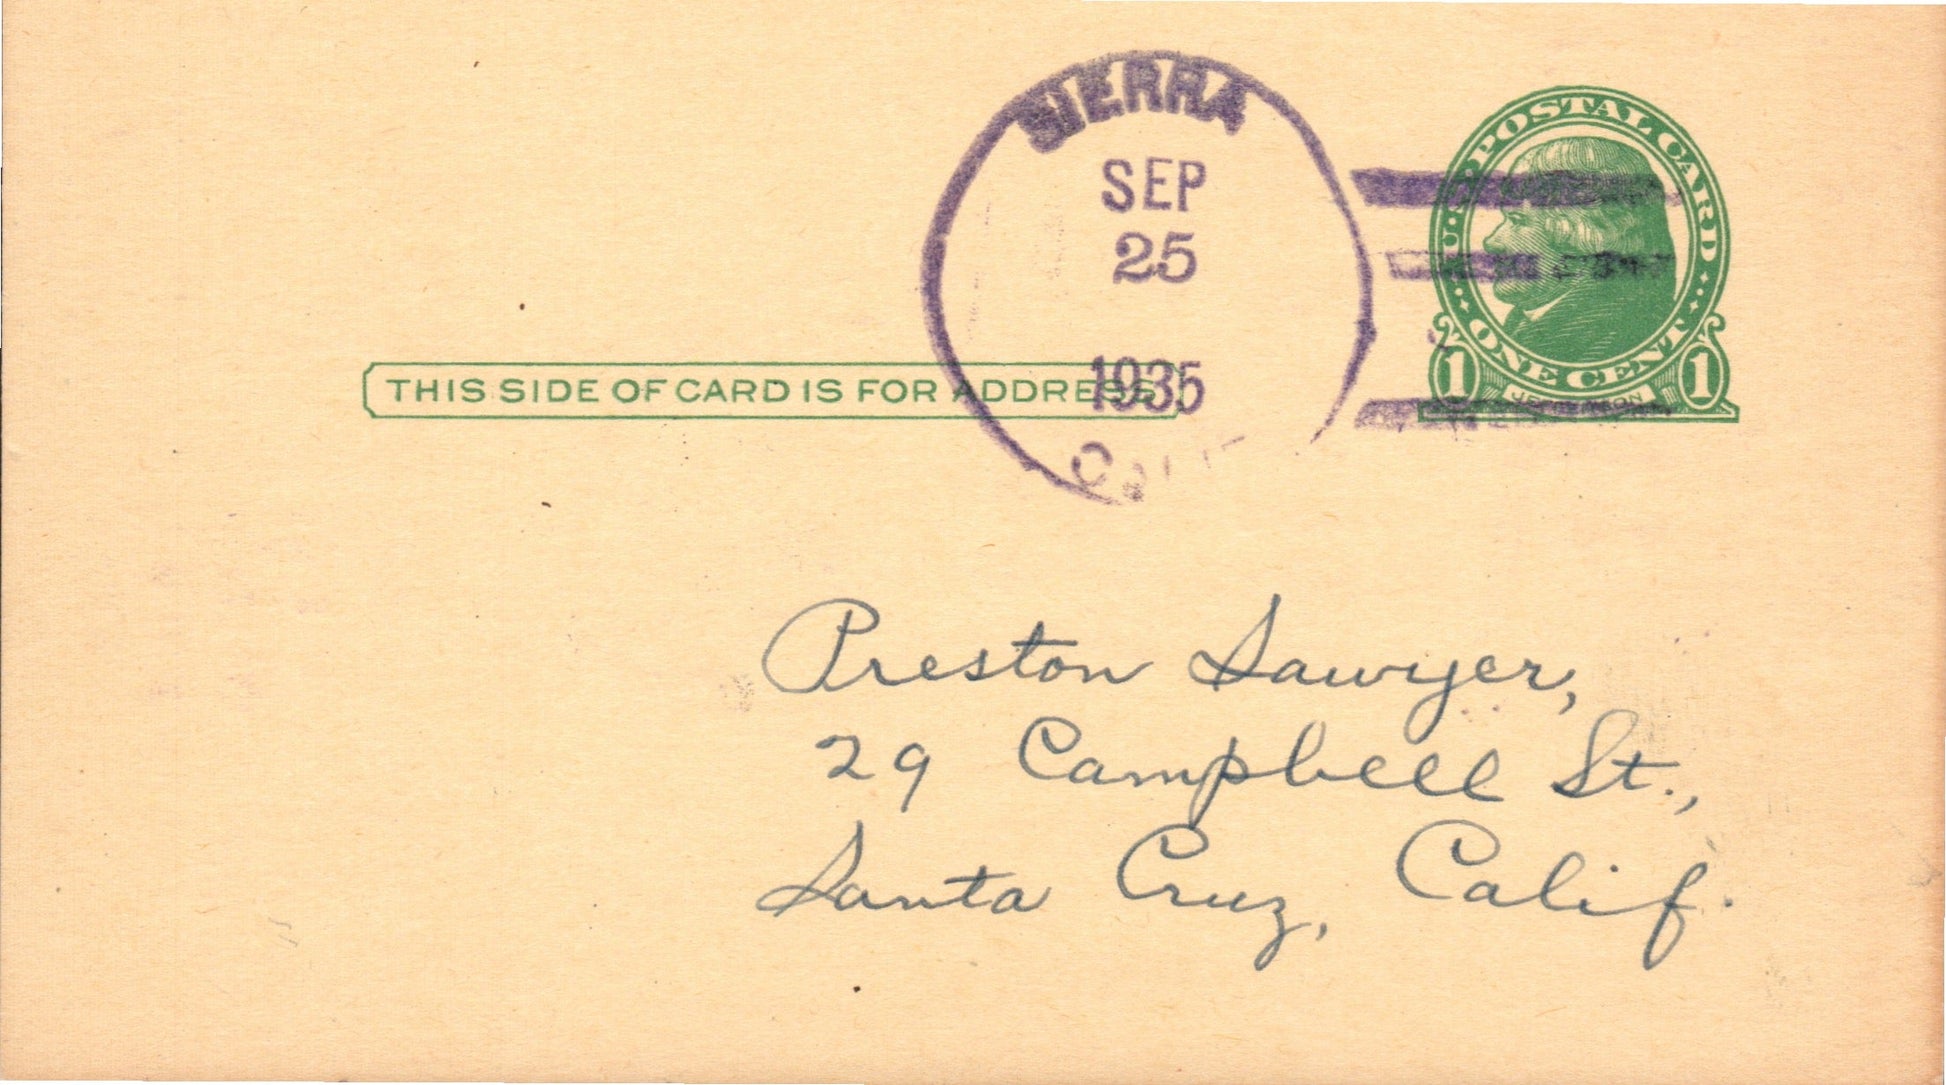 SIERRA
SEP
25
1935
CALIF
U·S·POSTAL CARD
ONE CENT
1 1
JEFFERSON
THIS SIDE OF CARD IS FOR ADDRESS
Preston Sawyer,
29 Campbell St.,
Santa Cruz, Calif.